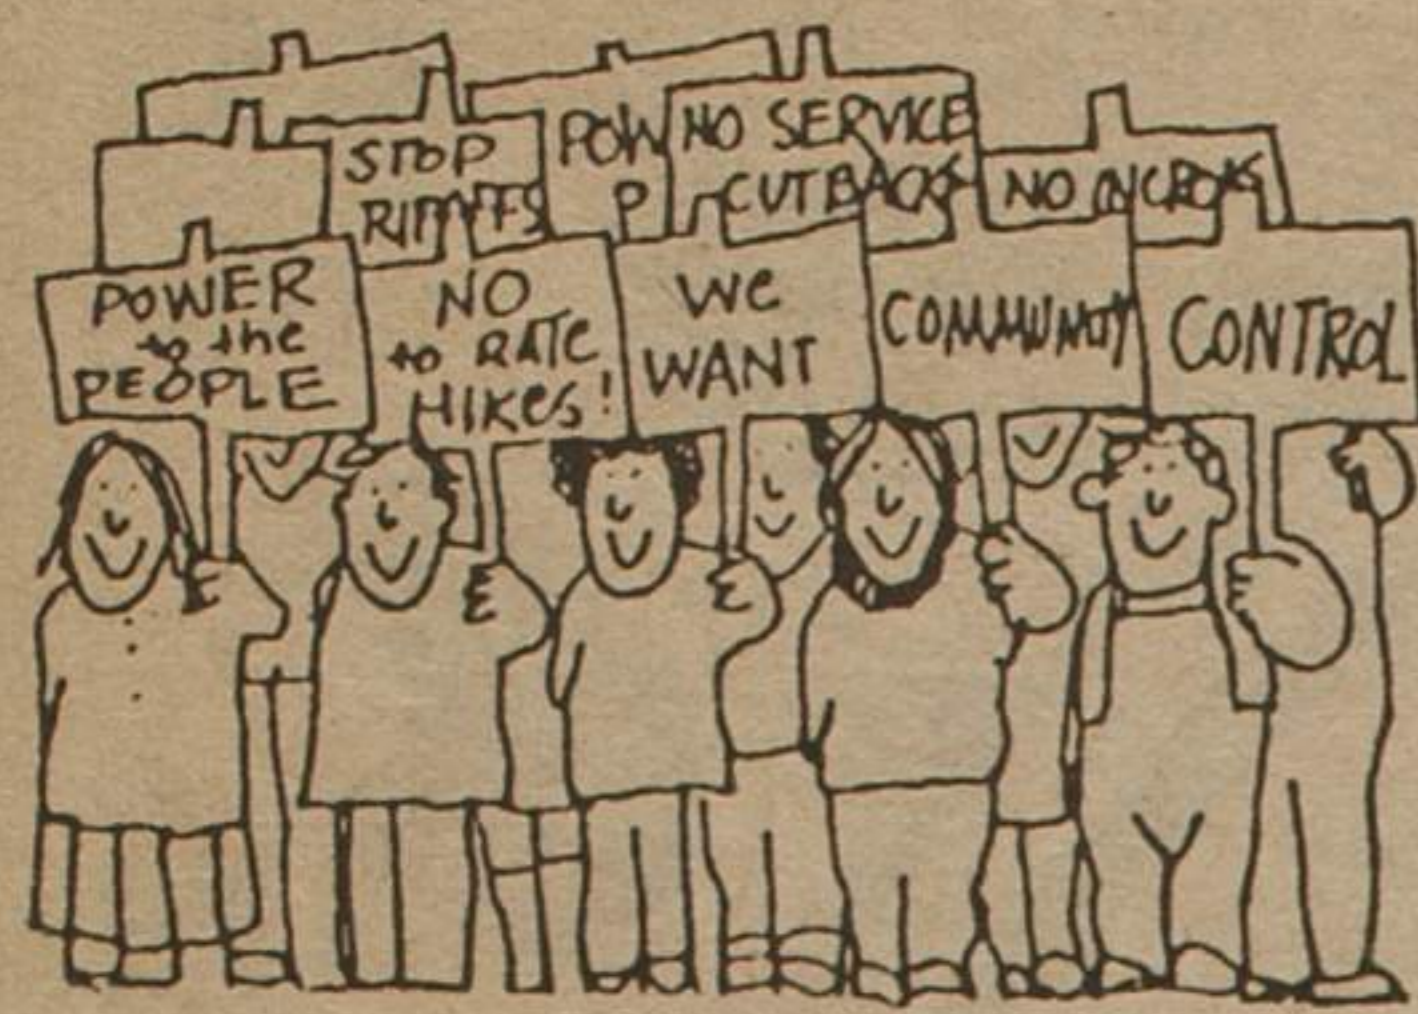 STOP
RIPOFFS
POW
P
NO SERVICE
CUTBACKS
NO
POWER
to the
PEOPLE
NO
to RATE
HIKES!
WE
WANT
COMMUNITY
CONTROL